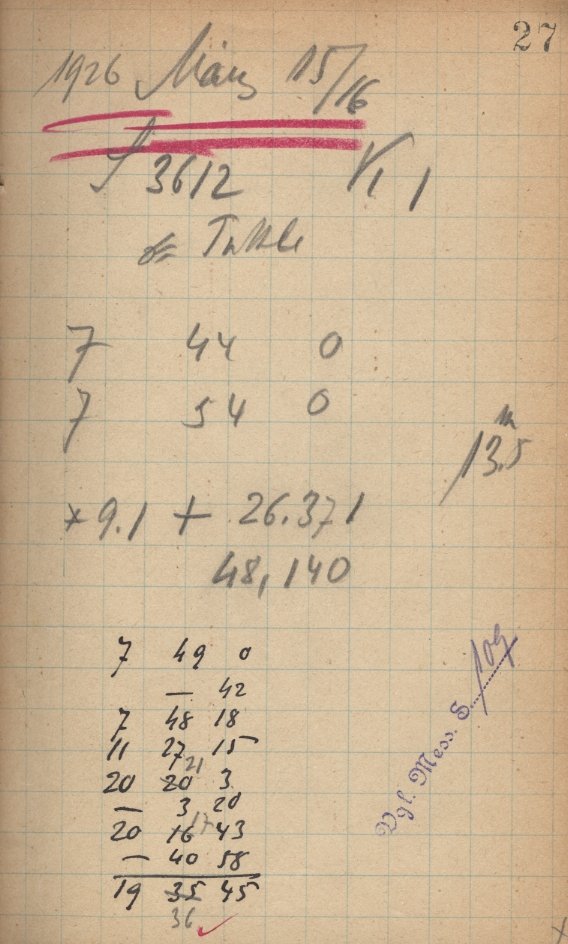 27
1926 März 15/16
3612 VI 1
7 44 0
7 54 0
13.5 m
* 9.1 + 26.371
48,140
7 49 0
— 42
7 48 18
11 27 15
21
20 20 3
— 3 20
17
20 16 43
— 40 58
19 35 45
36
Vgl. Mess. S. 109